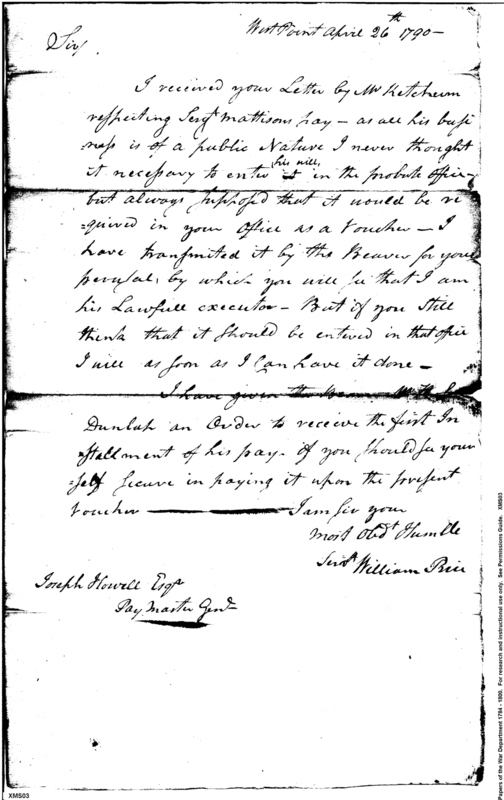 West Point April 26th 1790 —
Sir
I received your Letter by Mr Ketchum
respecting Sergt Mattisons pay — as all his busi
ness is of a public Nature I never thought
it necessary to enter his will, in the probate office —
but always supposed that it would be re
=quired in your office as a Voucher — I
have transmited it by the Bearer for your
perusal, by which you will see that I am
his Lawfull executor — But if you still
think that it should be entered in that office
I will as soon as I can have it done —
I have given the Bearer Mr
Dunlap an Order to receive the first In
=stallment of his pay — if you should see your
=self secure in paying it upon the present
Voucher — I am Sir your
most Obdt Humble
Servt William Price
Joseph Howell Esqr
Pay Master Genl
XMS03
Papers of the War Department 1784 - 1800. For research and instructional use only. See Permissions Guide. XMS03